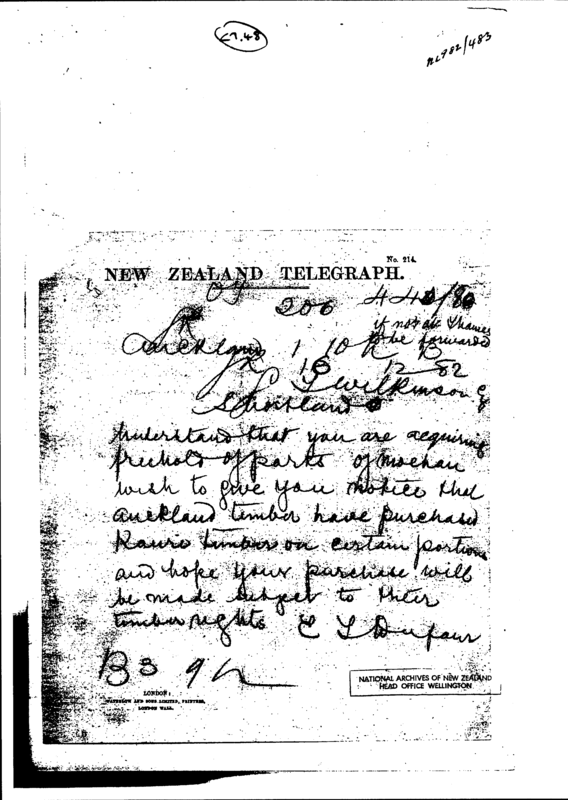 27.48
NL982/483
No. 214.
NEW ZEALAND TELEGRAPH.
206
if not at Thames
to be forwarded
Auckland 1 10
16 12 82
Wilkinson
Shortland
Understand that you are acquiring
freehold of parts of Moehau
wish to give you notice that
auckland timber have purchased
Kauri timber on certain portions
and hope your purchase will
be made subject to their
timber rights E T Dufaur
B3 9
NATIONAL ARCHIVES OF NEW ZEALAND
HEAD OFFICE WELLINGTON
LONDON:
WATERLOW AND SONS LIMITED, PRINTERS,
LONDON WALL.